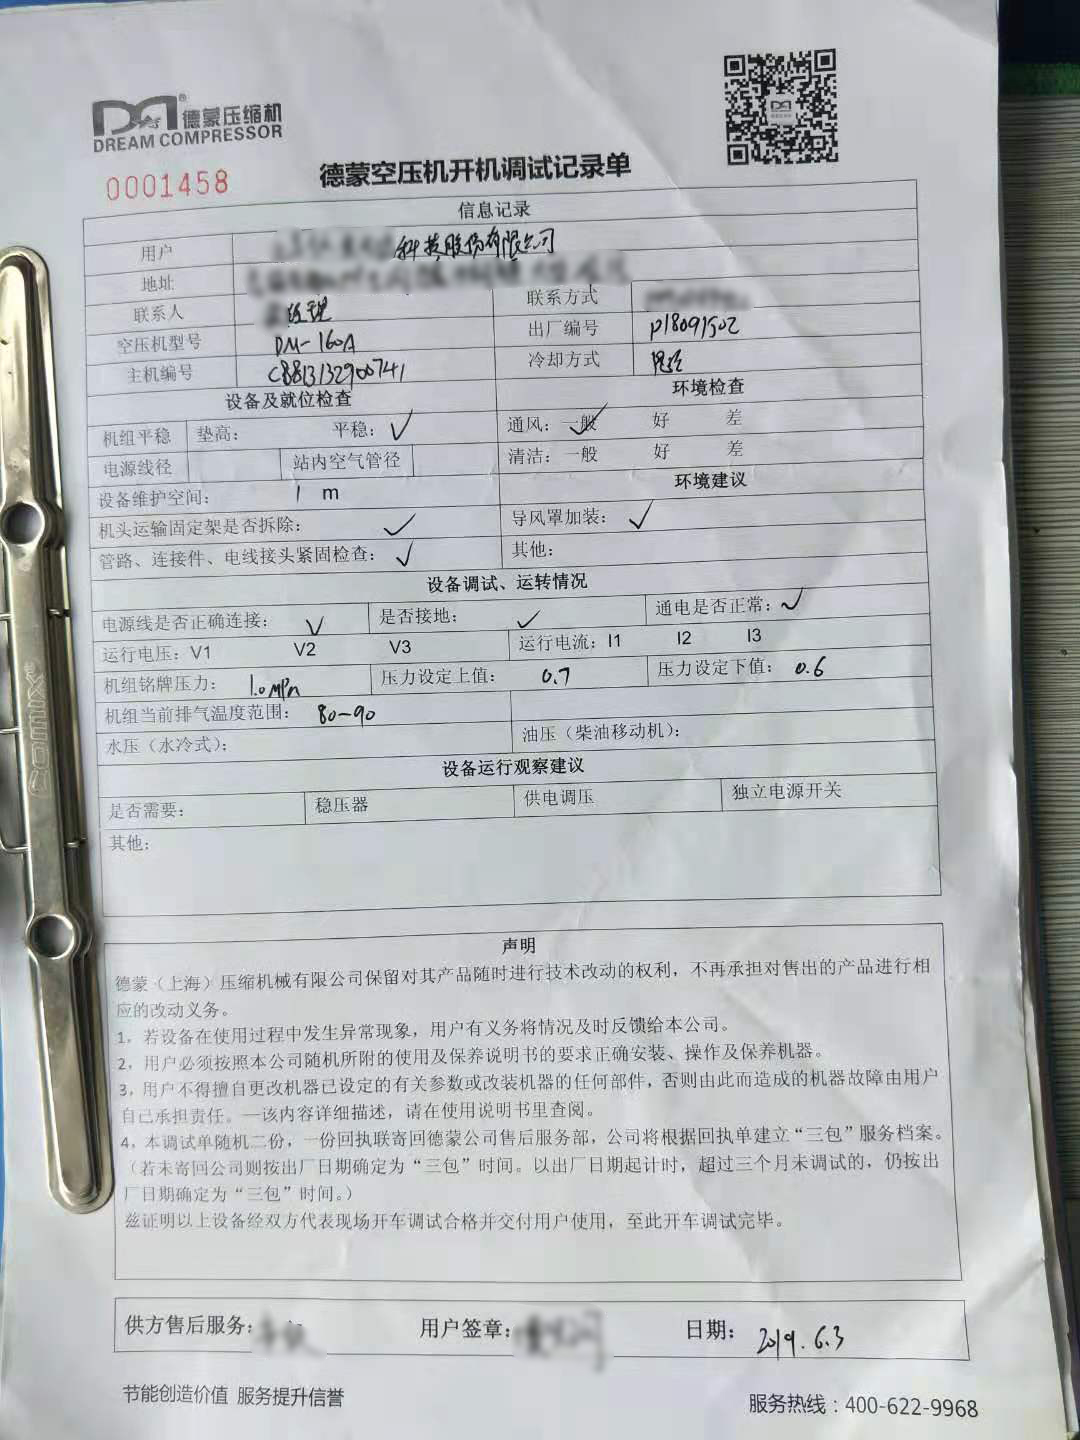 德蒙压缩机
DREAM COMPRESSOR
0001458
德蒙空压机开机调试记录单
信息记录
用户 科技股份有限公司
地址
联系人 经理 联系方式
空压机型号 DM-160A 出厂编号 P18091502
主机编号 CB813132900741 冷却方式
设备及就位检查 环境检查
机组平稳 垫高： 平稳：✓ 通风：一般✓ 好 差
电源线径 站内空气管径 清洁：一般 好 差
设备维护空间： 1 m 环境建议
机头运输固定架是否拆除： ✓ 导风罩加装：✓
管路、连接件、电线接头紧固检查：✓ 其他：
设备调试、运转情况
电源线是否正确连接： ✓ 是否接地： ✓ 通电是否正常：✓
运行电压：V1 V2 V3 运行电流：I1 I2 I3
机组铭牌压力： 1.0MPa 压力设定上值： 0.7 压力设定下值： 0.6
机组当前排气温度范围： 80-90
水压（水冷式）： 油压（柴油移动机）：
设备运行观察建议
是否需要： 稳压器 供电调压 独立电源开关
其他：
声明
德蒙（上海）压缩机械有限公司保留对其产品随时进行技术改动的权利，不再承担对售出的产品进行相
应的改动义务。
1，若设备在使用过程中发生异常现象，用户有义务将情况及时反馈给本公司。
2，用户必须按照本公司随机所附的使用及保养说明书的要求正确安装、操作及保养机器。
3，用户不得擅自更改机器已设定的有关参数或改装机器的任何部件，否则由此而造成的机器故障由用户
自己承担责任。—该内容详细描述，请在使用说明书里查阅。
4，本调试单随机二份，一份回执联寄回德蒙公司售后服务部，公司将根据回执单建立“三包”服务档案。
（若未寄回公司则按出厂日期确定为“三包”时间。以出厂日期起计时，超过三个月未调试的，仍按出
厂日期确定为“三包”时间。）
兹证明以上设备经双方代表现场开车调试合格并交付用户使用，至此开车调试完毕。
供方售后服务： 用户签章： 日期： 2019.6.3
节能创造价值 服务提升信誉
服务热线：400-622-9968
comix